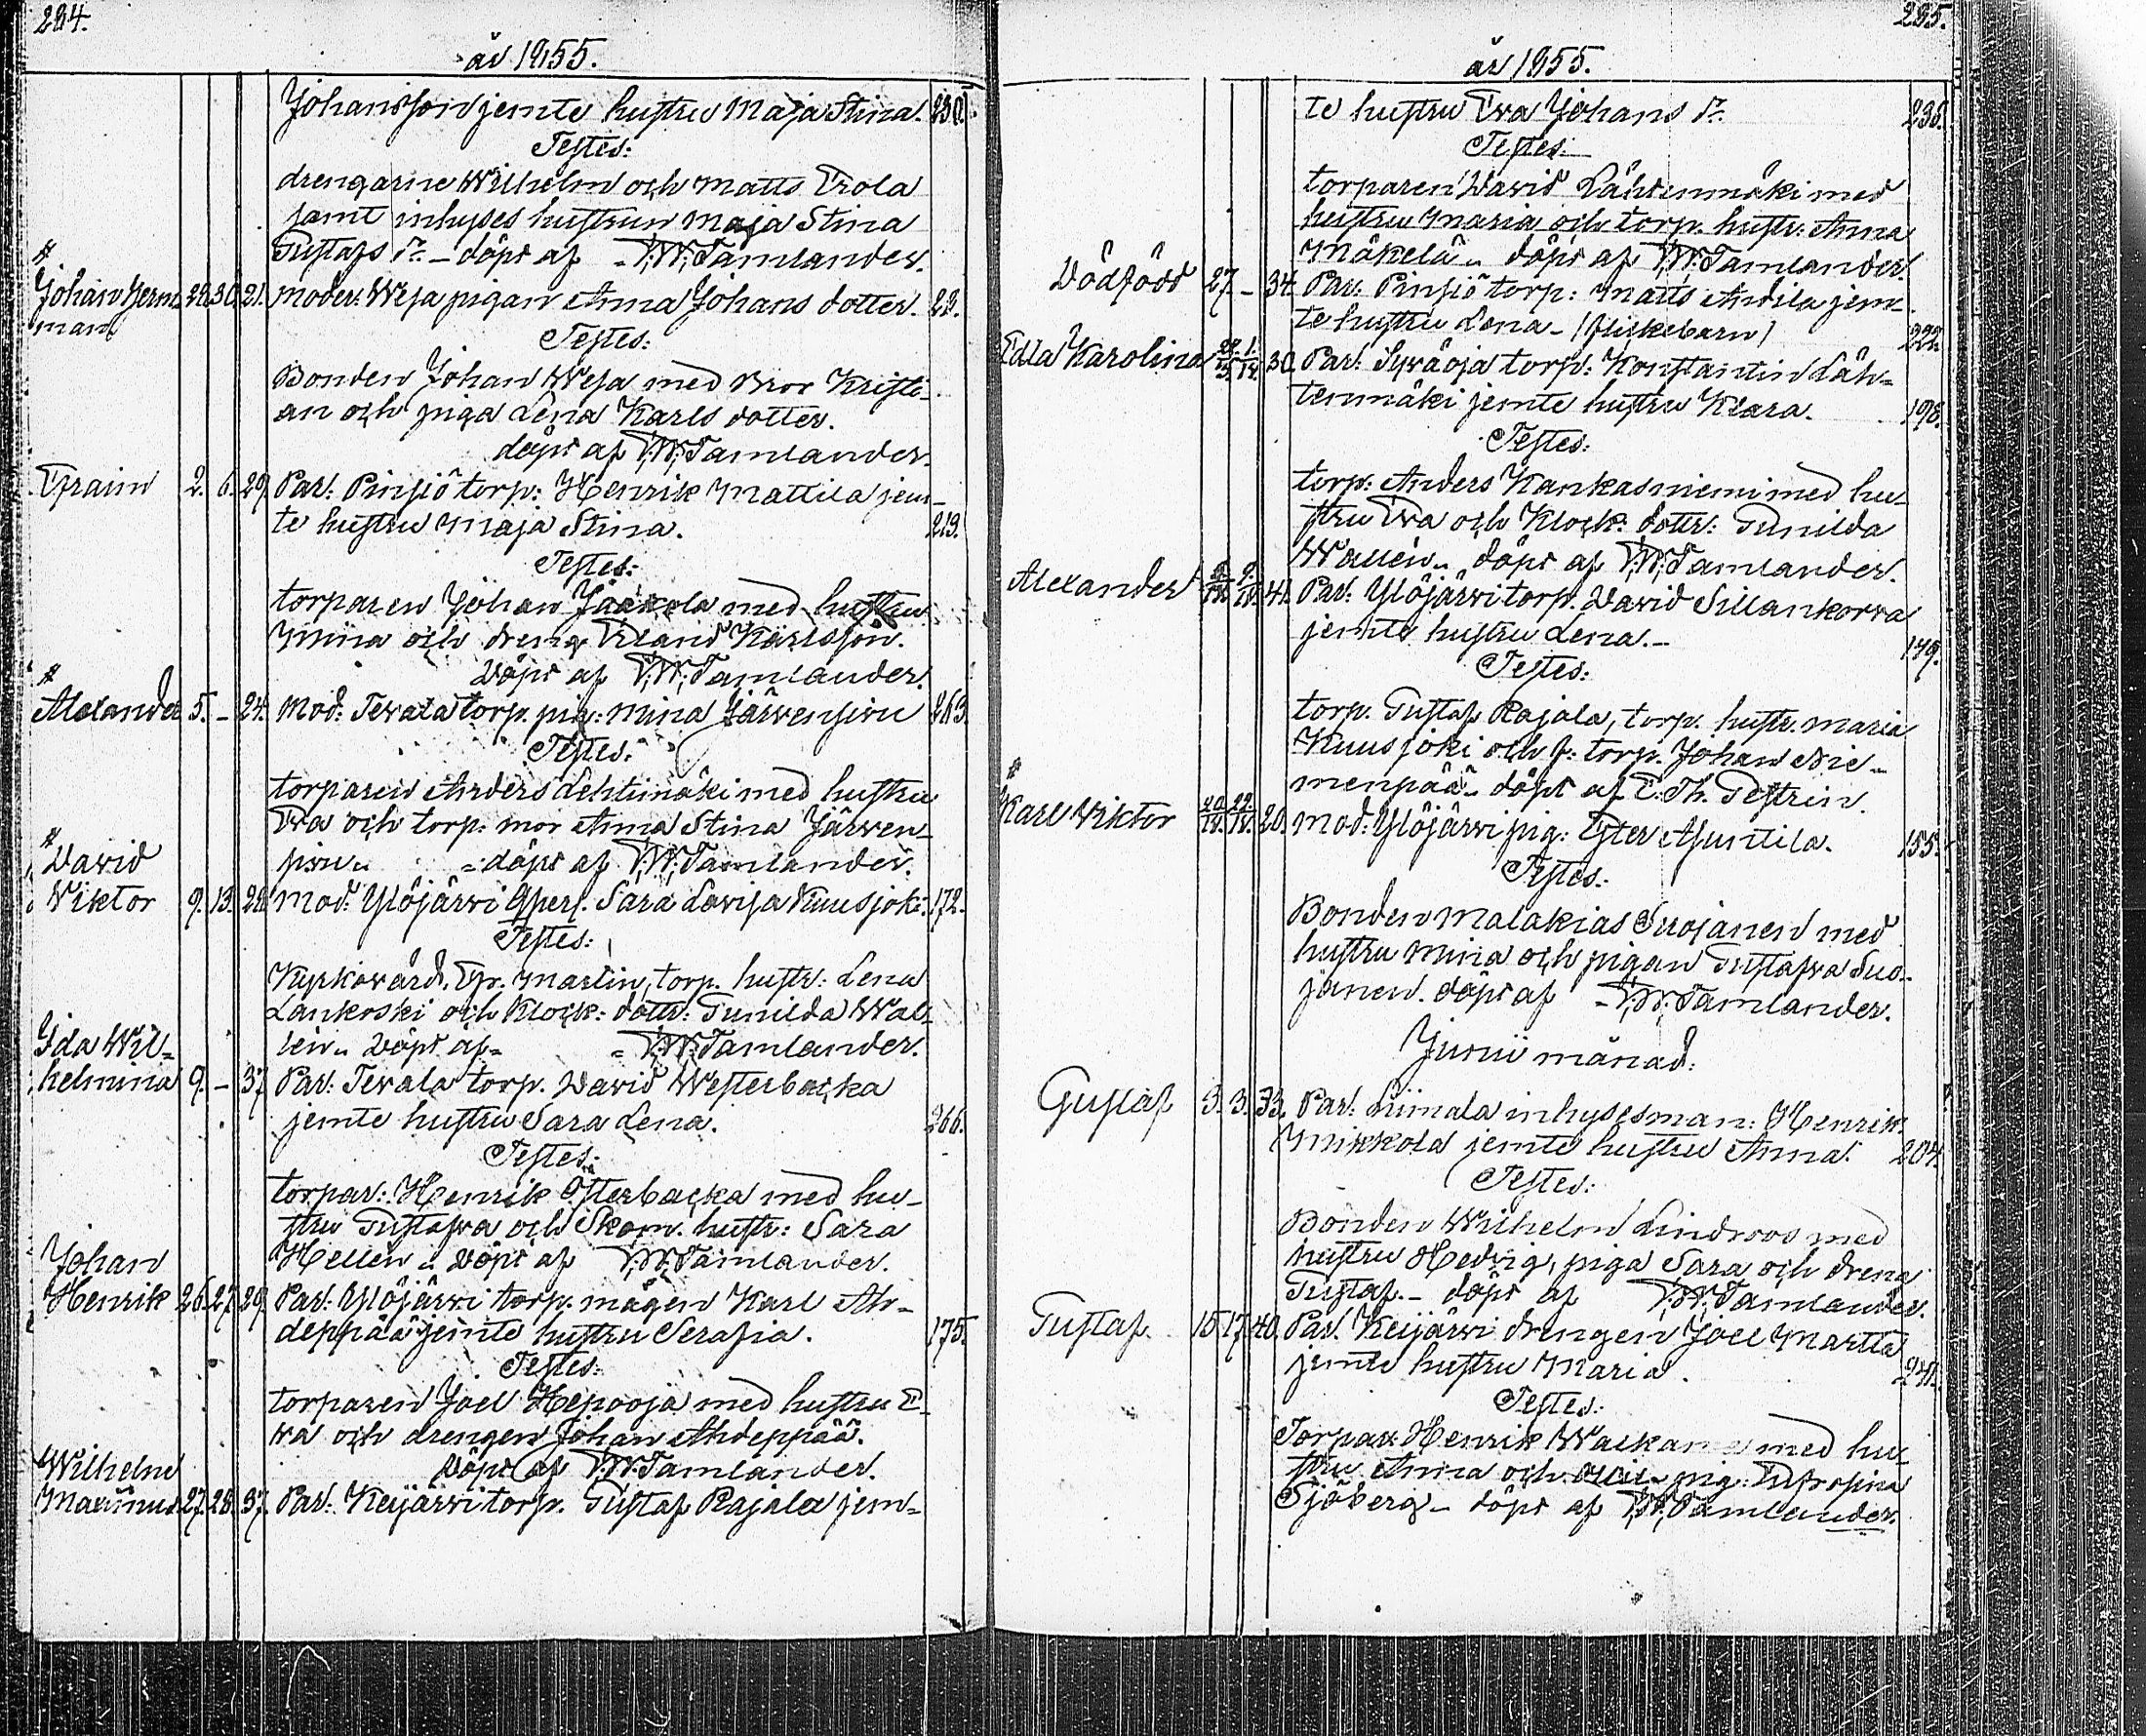 284.
år 1855.
Johansson jemte hustru Maja Stina. 230.
Testes:
drengarne Wilhelm och Matts Erola
jemt inhyses hustrun Maja Stina
Gustafs dr. – döpt af F. W. Tamlander.
Johan Herrman 28. 30. 21. Moder: Wesa pigan Anna Johans dotter. 23.
Testes:
Bonden Johan Wesa med bror Kristi-
an och piga Lena Karls dotter.
döpt af F. W. Tamlander.
Efraim 2. 6. 29. Par: Pinsiö torp: Henrik Mattila jem-
te hustru Maja Stina. 213.
Testes:
torparen Johan Jaakola med hustru
Miina och dreng Erland Karlsson.
Döpt af F. W. Tamlander.
Alexander 5. – 24. Mod: Tevala torp. pig: Mina Järvensivu 263.
Testes:
torparen Anders Lehtimäki med hustru
Eva och torp: mor Anna Stina Järven-
sivu döpt af F. W. Tamlander.
David
Viktor 9. 13. 22. Mod: Ylöjärvi Qpers. Sara Lovisa Kuusjoki. 172.
Testes:
Kyrkovärd. Er. Martin, torp. hustr: Lena
Lankoski och Klock: dottr: Gunilda Wal-
len. Döpt af F. W. Tamlander.
Ida Wil-
helmina 9. – 37. Par: Tevala torp. David Westerbacka
jemte hustru Sara Lena. 266.
Testes:
torpar: Henrik Österbacka med hu-
stru Gustafva och Skom. hustr: Sara
Hellen. Döpt af F. W. Tamlander.
Johan
Henrik 26. 27. 29. Par: Ylöjärvi torp. mågen Karl Ah-
deppää jemte hustru Serafia. 175.
Testes:
torparen Joel Hepooja med hustru E-
va och drengen Johan Ahdeppää.
Döpt af F. W. Tamlander.
Wilhelm
Maximus 27. 28. 37. Par: Keijärvi torp. Gustaf Rajala jem-
285.
år 1855.
te hustru Eva Johans dr. 238.
Testes:
torparen David Lähtenmäki med
hustru Maria och torp. hustr: Anna
Mäkelä döpt af F. W. Tamlander.
Dödfödd 27. – 34. Par: Pinsiö torp: Matts Anttila jem-
te hustru Lena – (flickebarn) 222.
Edla Karolina 30. Par: Syväoja torp: Konstantin Läh-
tenmäki jemte hustru Klara. 198.
Testes:
torp: Anders Kankasniemi med hu-
stru Eva och Klock: dottr: Gunilda
Wallen. döpt af F. W. Tamlander.
Alexander 41. Par: Ylöjärvi torp. David Sillankorva
jemte hustru Lena. – 149.
Testes:
torp. Gustaf Rajala, torp. hustr. Maria
Kuusjoki och f: torp. Johan Nie-
menpää – döpt af C. Th. Gestrin.
Karl Viktor 20. Mod: Ylöjärvi pig: Ester Anttila. 155.
Testes:
Bonden Malakias Suojanen med
hustru Mina och pigan Gustafva Suo-
janen. döpt af F. W. Tamlander.
Junii månad.
Gustaf 3. 3. 33. Par: Siimala inhysesman: Henrik
Mikkola jemte hustru Anna. 204.
Testes:
Bonden Wilhelm Lindroos med
hustru Hedvig, piga Sara och dreng
Gustaf. – döpt af F. W. Tamlander.
Gustaf. 15. 17. 40. Par. Keijärvi drengen Joel Martta
jemte hustru Maria. 241.
Testes:
Torpar. Henrik med hu-
stru Anna och pig: Eufrosina
Sjöberg – döpt af F. W. Tamlander.